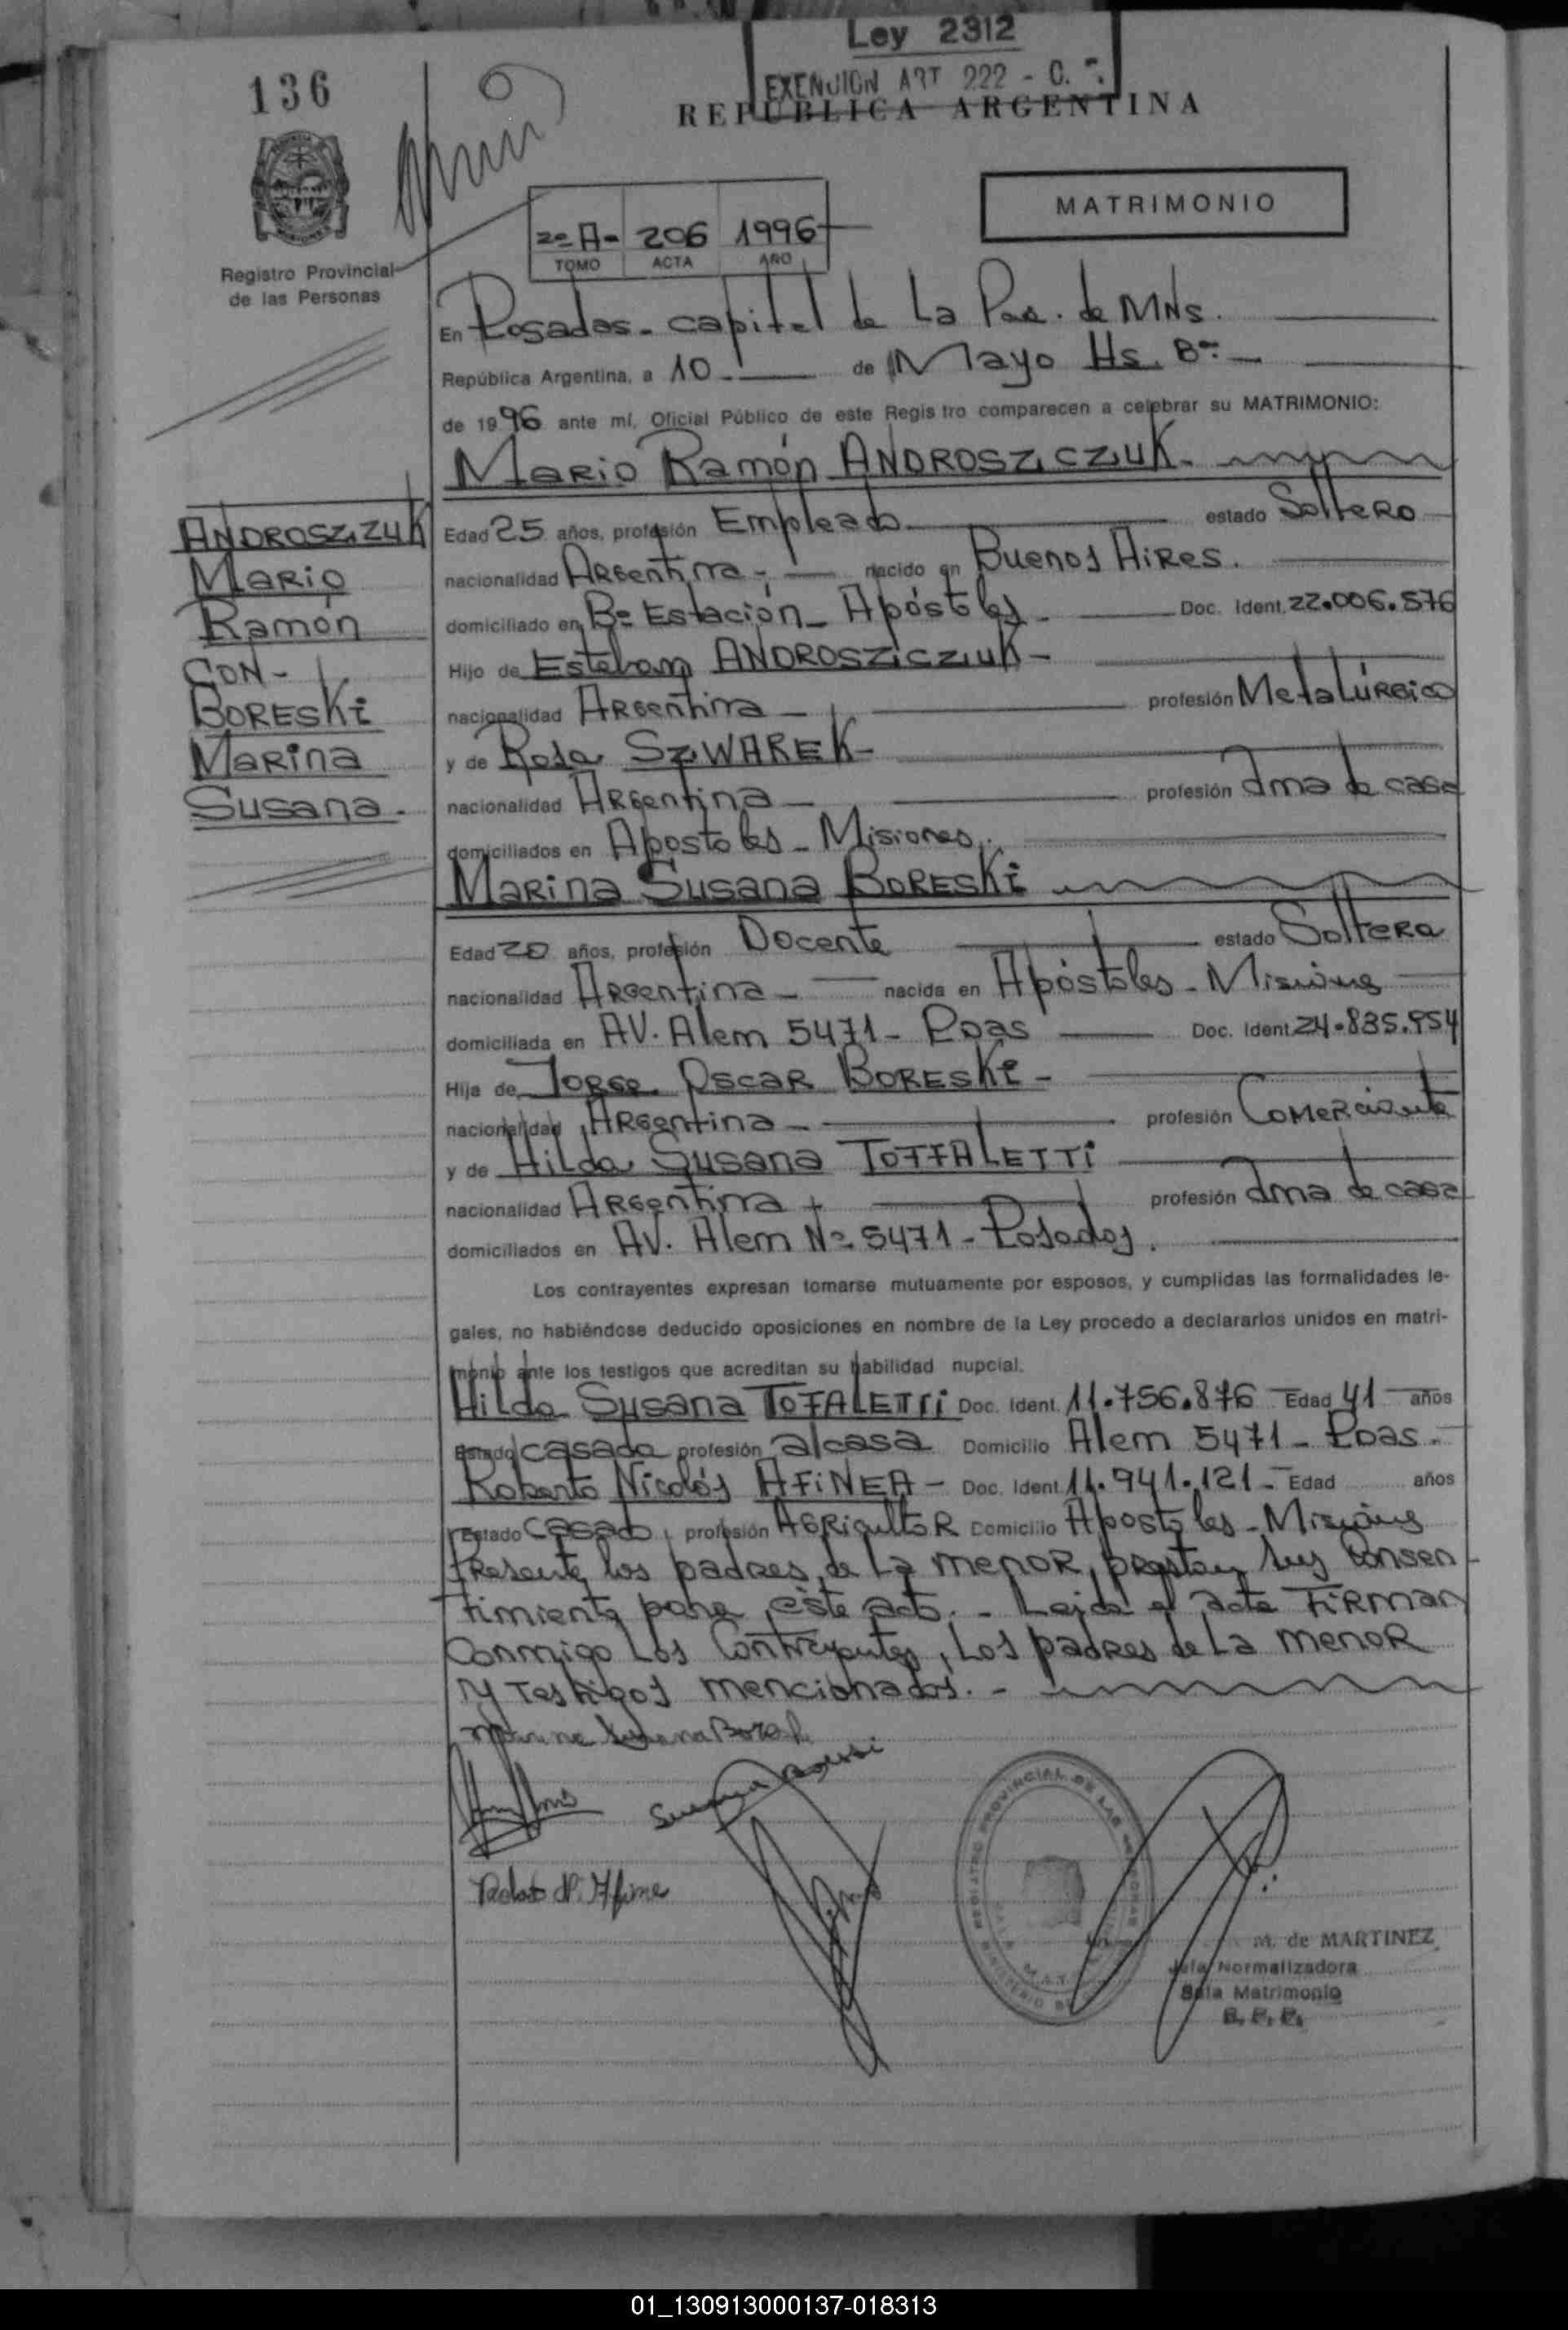 Ley 2312
EXENCION ART 222 - C.
136
REPUBLICA ARGENTINA
MATRIMONIO
2º A- 206 1996
TOMO ACTA AÑO
Registro Provincial
de las Personas
En Posadas - capital de La Pcia. de MNs.
República Argentina, a 10 de Mayo Hs. 8
de 1996 ante mí, Oficial Público de este Registro comparecen a celebrar su MATRIMONIO:
Mario Ramón ANDROSZICZIUK -
ANDROSZIZUK
Mario
Ramón
CON -
BORESKi
Marina
Susana -
Edad 25 años, profesión Empleado estado Soltero
nacionalidad Argentina - nacido en Buenos Aires.
domiciliado en Bº Estación - Apóstoles - Doc. Ident. 22.006.576
Hijo de Esteban ANDROSZICZIUK -
nacionalidad Argentina - profesión Metalúrgico
y de Rosa SZWAREK -
nacionalidad Argentina - profesión Ama de casa
domiciliados en Apostoles - Misiones.
Marina Susana BORESKi
Edad 20 años, profesión Docente estado Soltera
nacionalidad Argentina - nacida en Apóstoles - Misiones
domiciliada en AV. Alem 5471 - Pdas Doc. Ident. 24.835.954
Hija de Jorge Oscar BORESKi -
nacionalidad Argentina - profesión Comerciante
y de Hilda Susana TOFFALETTi
nacionalidad Argentina profesión Ama de casa
domiciliados en AV. Alem Nº 5471 - Posadas.
Los contrayentes expresan tomarse mutuamente por esposos, y cumplidas las formalidades le-
gales, no habiéndose deducido oposiciones en nombre de la Ley procedo a declararlos unidos en matri-
monio ante los testigos que acreditan su habilidad nupcial.
Hilda Susana TOFALETTi Doc. Ident. 11.756.876 Edad 41 años
Estado casada profesión a/casa Domicilio Alem 5471 - Pdas.
Roberto Nicolás AFiNEA - Doc. Ident. 11.941.121 - Edad años
Estado casado profesión Agricultor Domicilio Apostoles - Misiones
Presente los padres de La menor, prestan sus consen
timiento para este acto. - Leida el acta Firman
Conmigo Los Contrayentes, Los padres de La menor
y Testigos mencionados. -
Marina Susana Boreski
M. de MARTINEZ
Jefa Normalizadora
Sala Matrimonio
R. P. P.
01_130913000137-018313